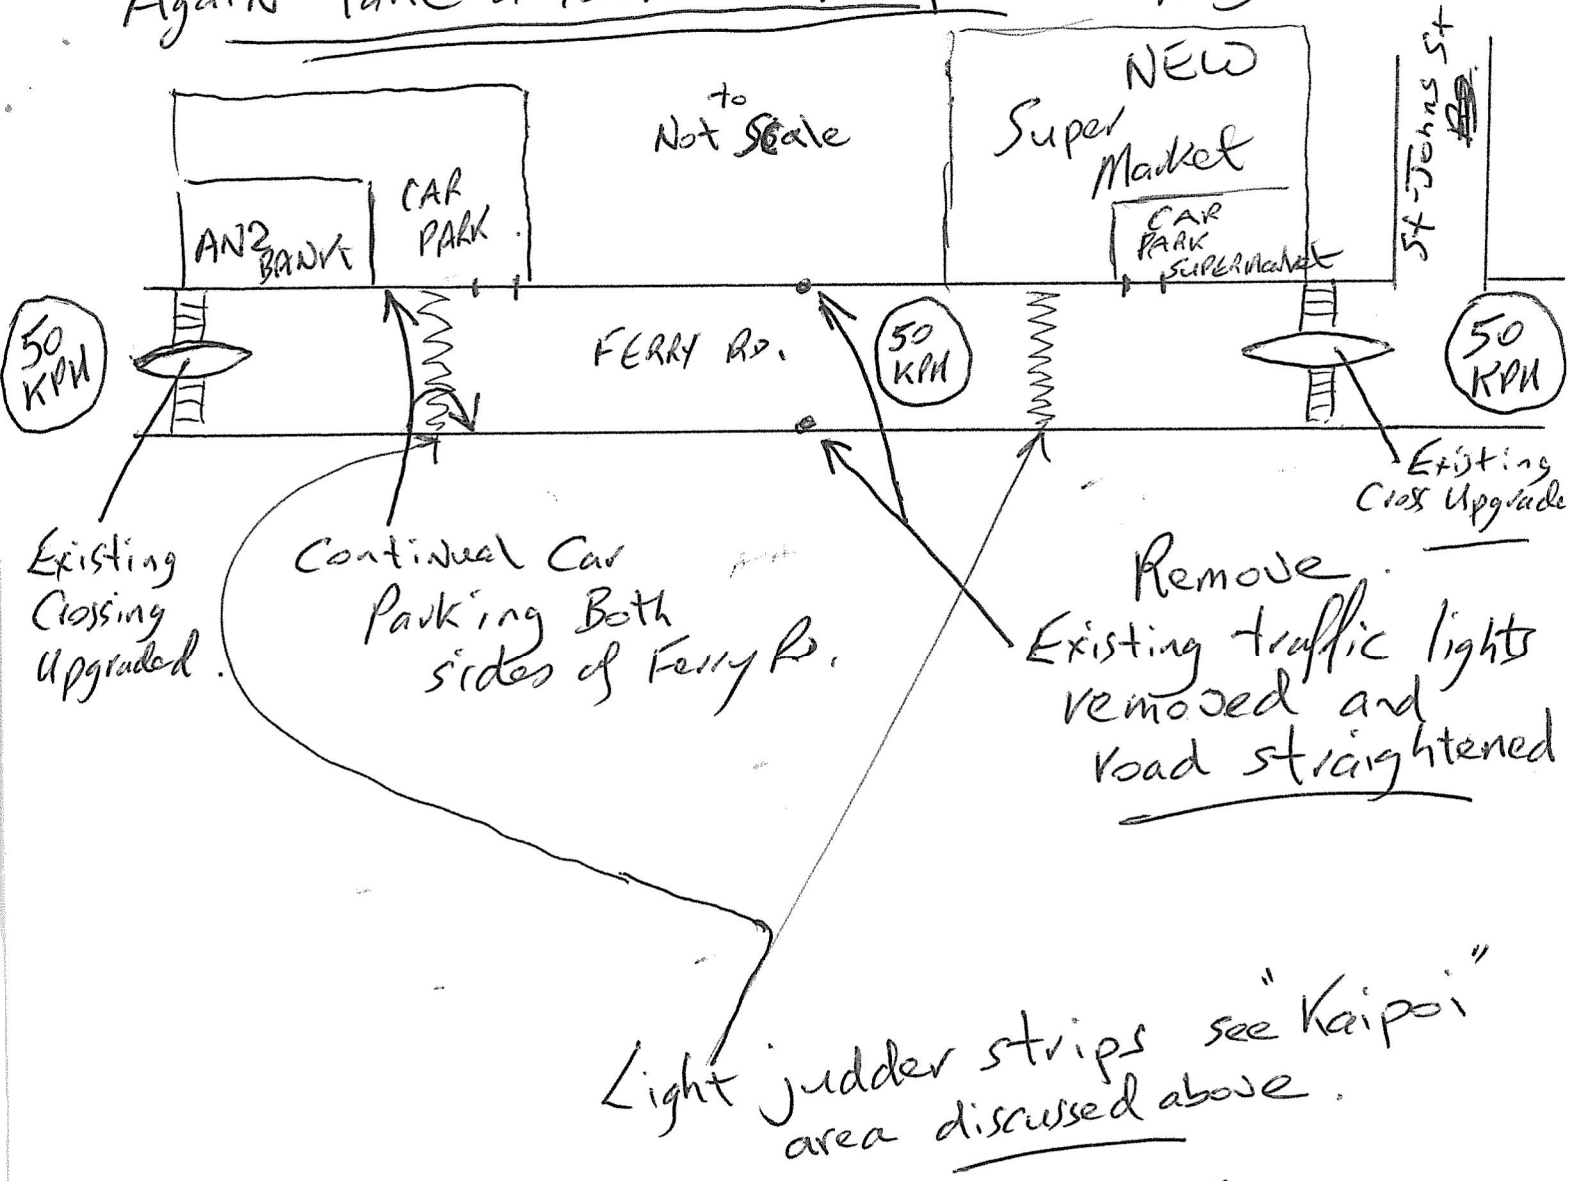 Again
NEW
Super
Market
to
Not Scale
St-Johns St
CAR
PARK
CAR
PARK
SUPERMarket
ANZ
BANK
50
KPH
FERRY RD.
50
KPH
50
KPH
Existing
Cross Upgrade
Existing
Crossing
Upgraded.
Continual Car
Parking Both
sides of Ferry Rd.
Remove
Existing traffic lights
removed and
road straightened
Light judder strips see "Kaipoi"
area discussed above.